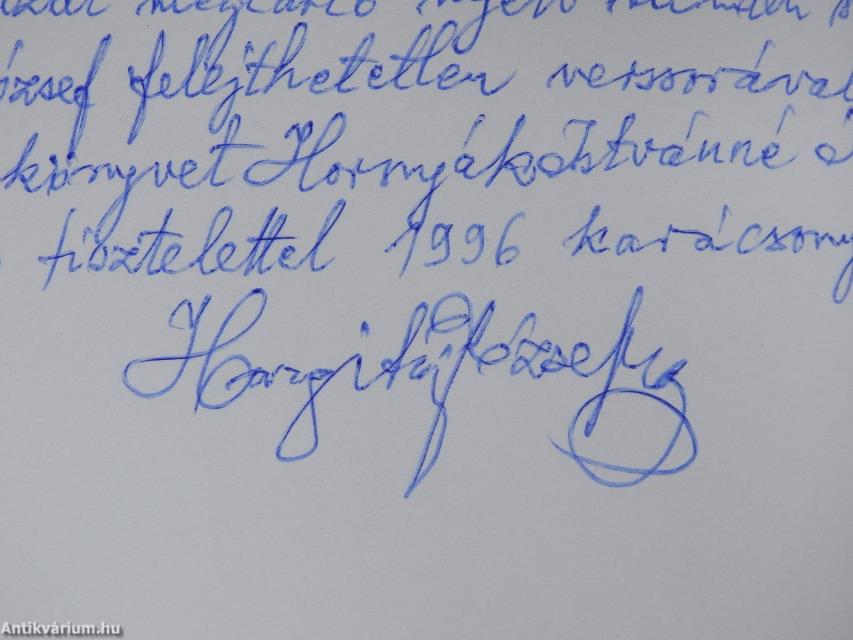 ózsef felejthetetlen verssorával
könyvet Hornyák Istvánné
tisztelettel 1996 karácsony
Hargitaj József
Antikvárium.hu